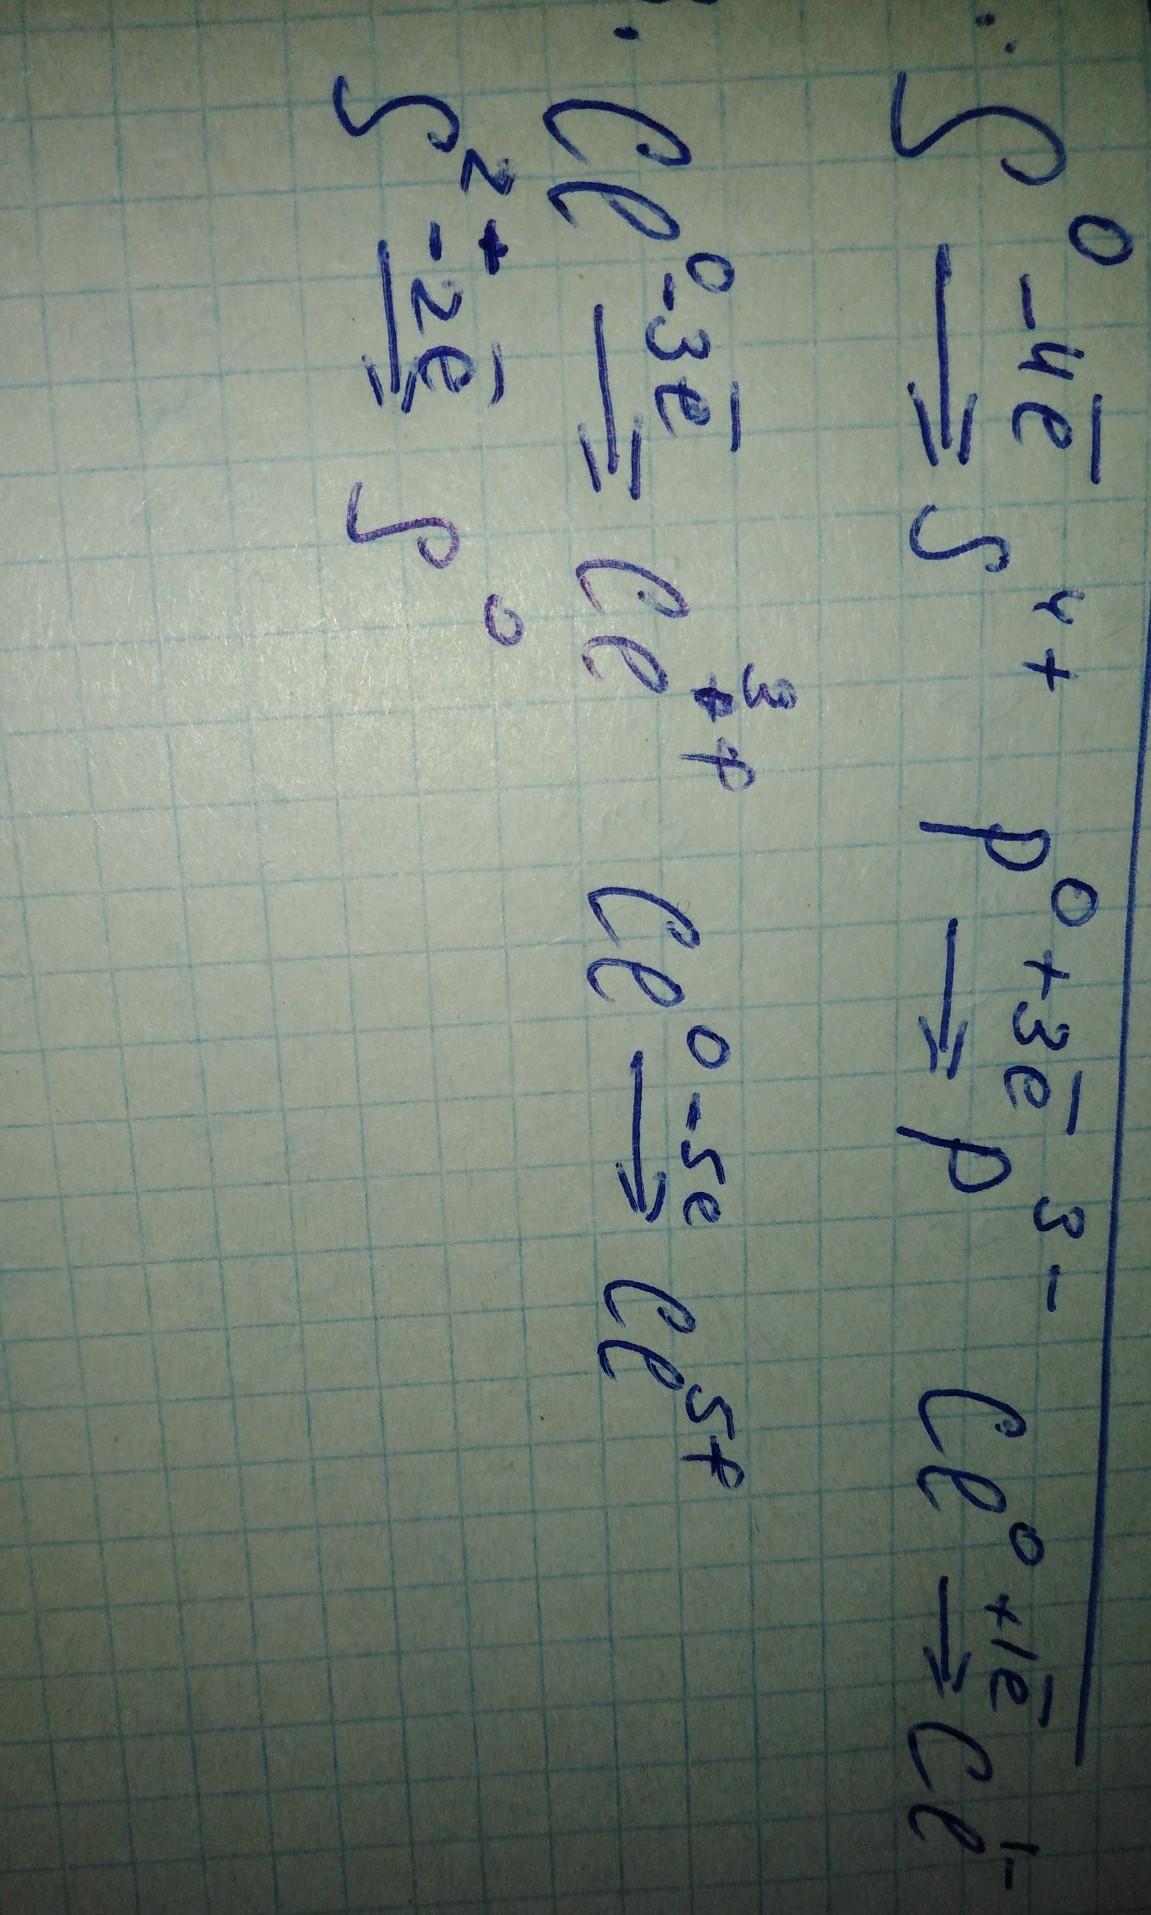 S⁰ -4ē → S⁴⁺ P⁰ +3ē → P³⁻ Cl⁰ +1ē → Cl¹⁻
Cl⁰ -3ē → Cl³⁺ Cl⁰ -5e → Cl⁵⁺
S²⁺ -2ē → S⁰